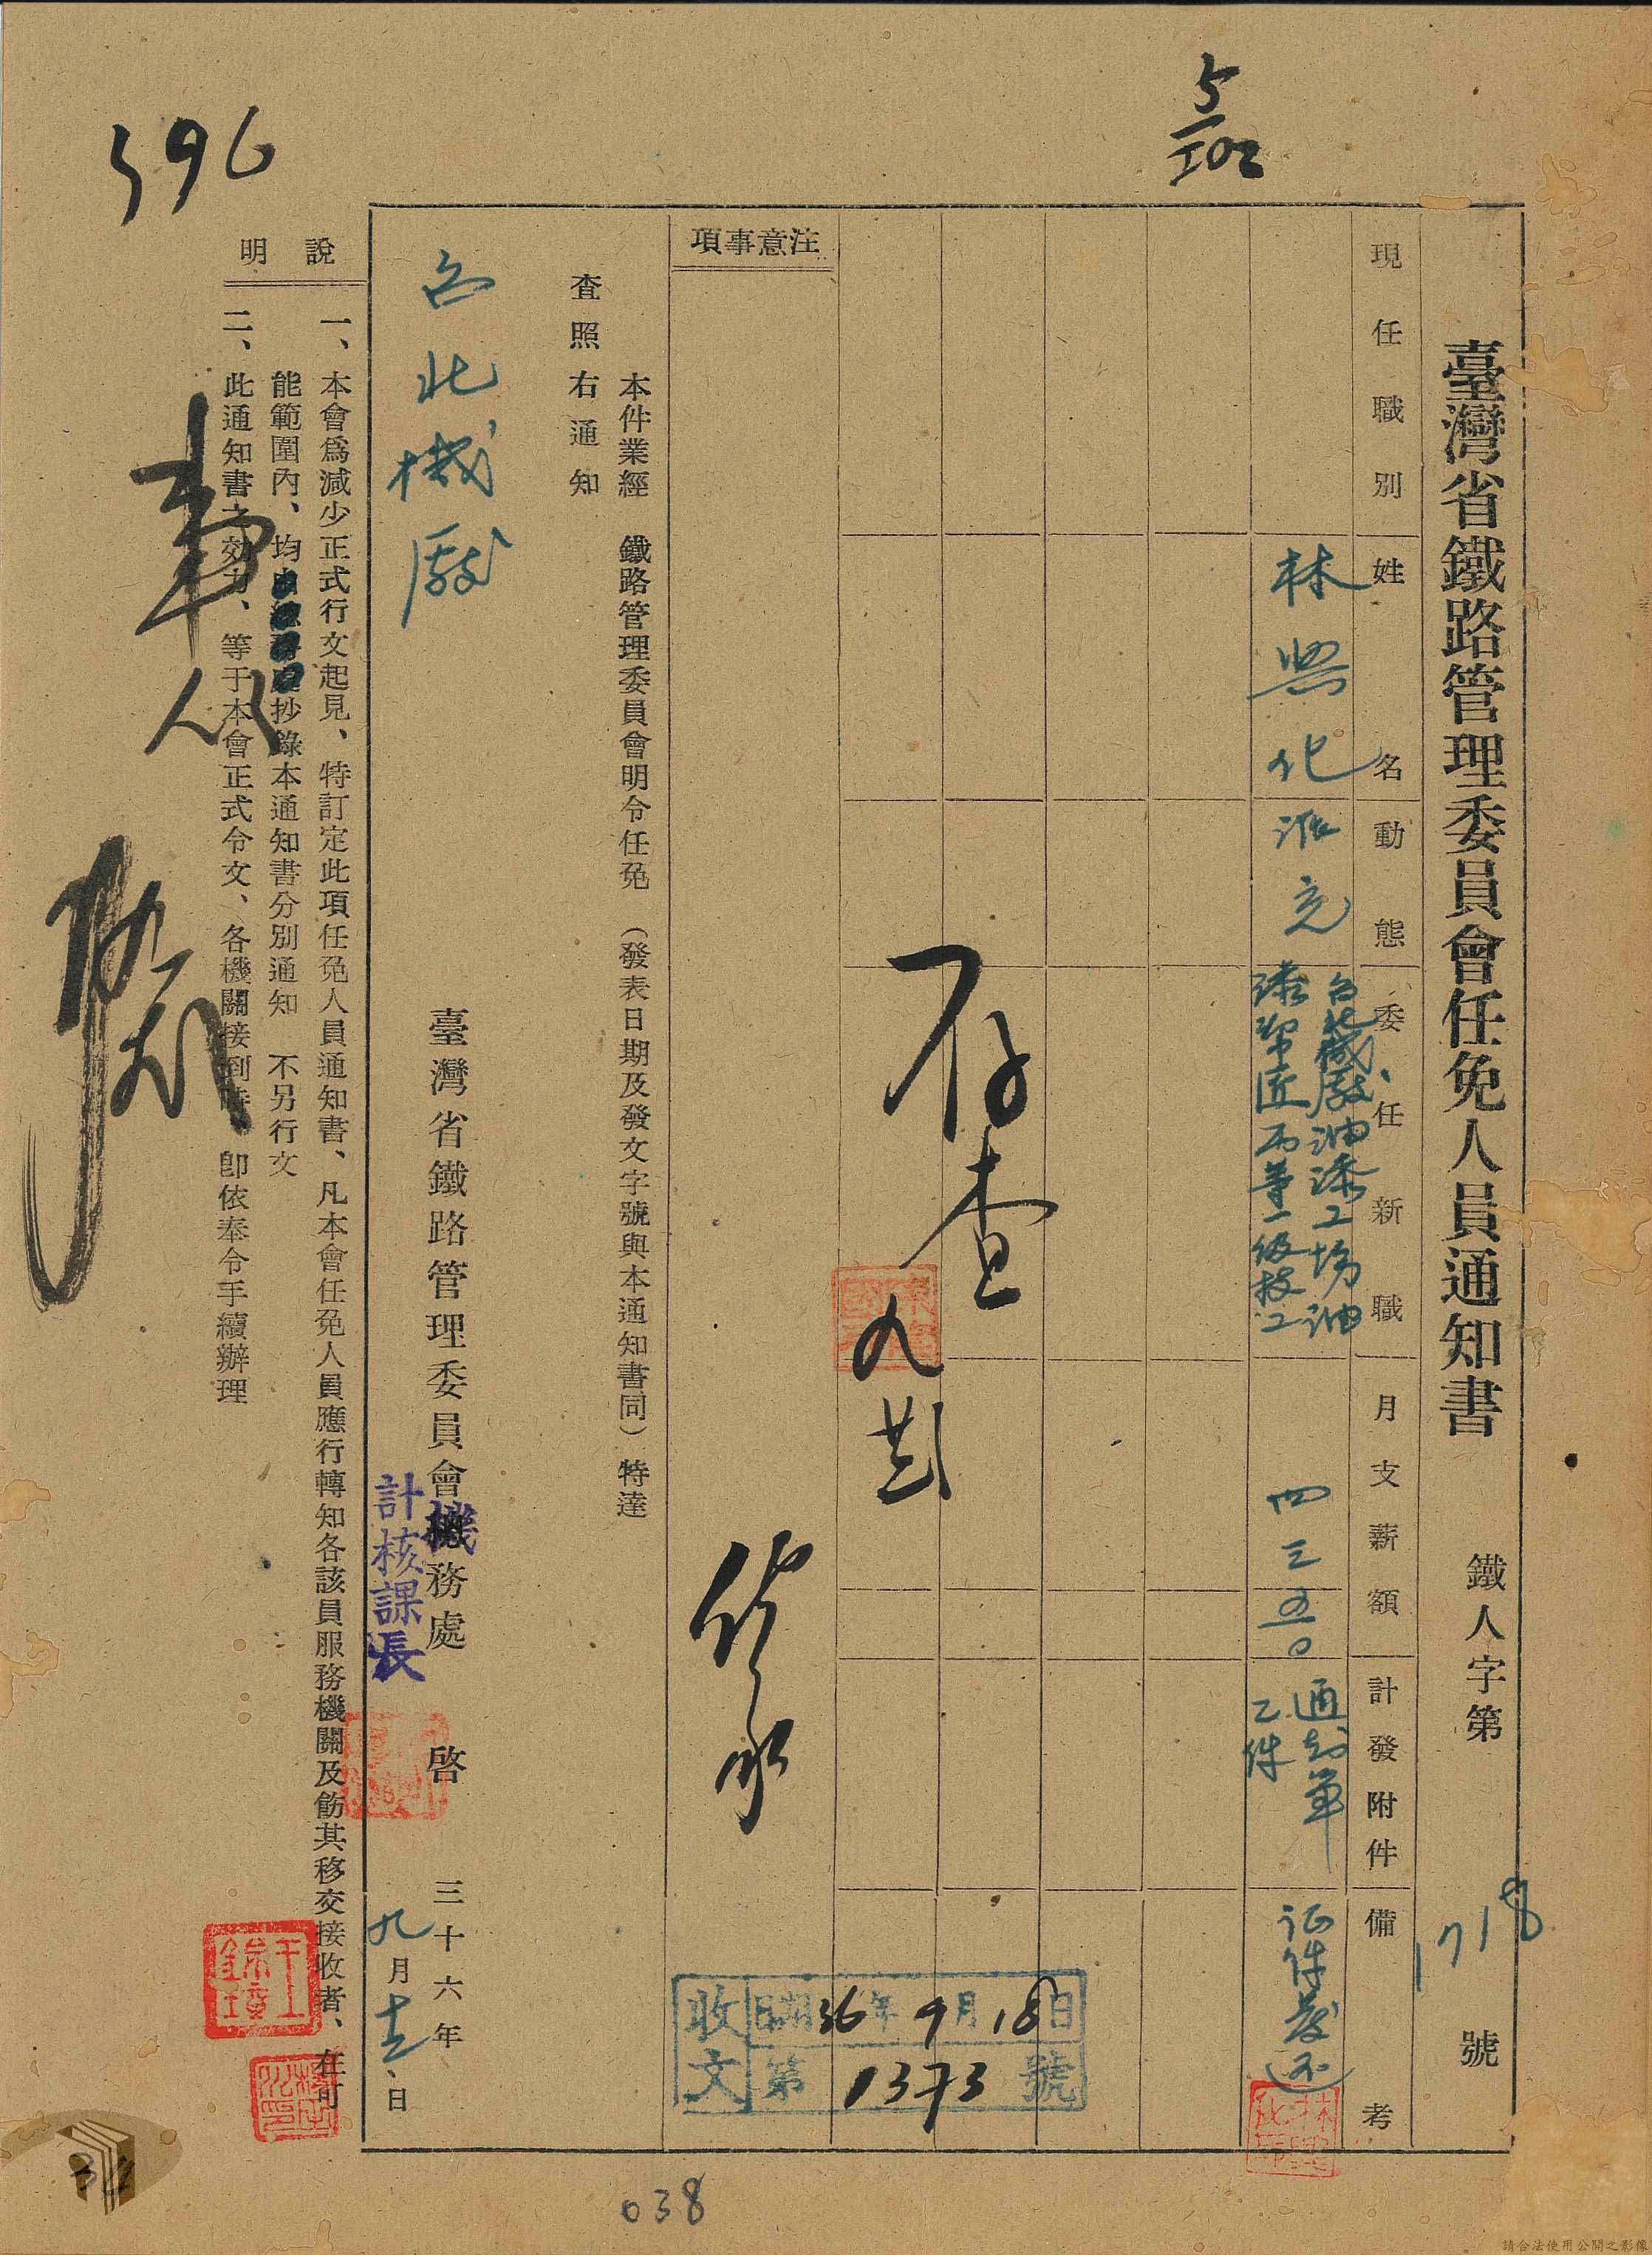 5/102
396
臺灣省鐵路管理委員會任免人員通知書
鐵人字第1718號
現任職別
姓名
動態
委任新職
月支薪額
計發附件
備考
林興化
派充
台北機廠油漆工場油
漆帮匠丙等一級技工
四三五〇
通知單
乙件
证件發还
存查
注意事項
本件業經 鐵路管理委員會明令任免 (發表日期及發文字號與本通知書同) 特達
查照右通知
台北機廠
臺灣省鐵路管理委員會機務處 啓
計核課長
三十六年
九月 日
收文
日期36年9月18日
第1373號
說明
一、本會爲減少正式行文起見、特訂定此項任免人員通知書、凡本會任免人員應行轉知各該員服務機關及飭其移交接收者、在可
能範圍內、均 抄錄本通知書分別通知 不另行文
二、此通知書之効力、等于本會正式令文、各機關接到時 卽依奉令手續辦理
人事
038
請合法使用公開之影像